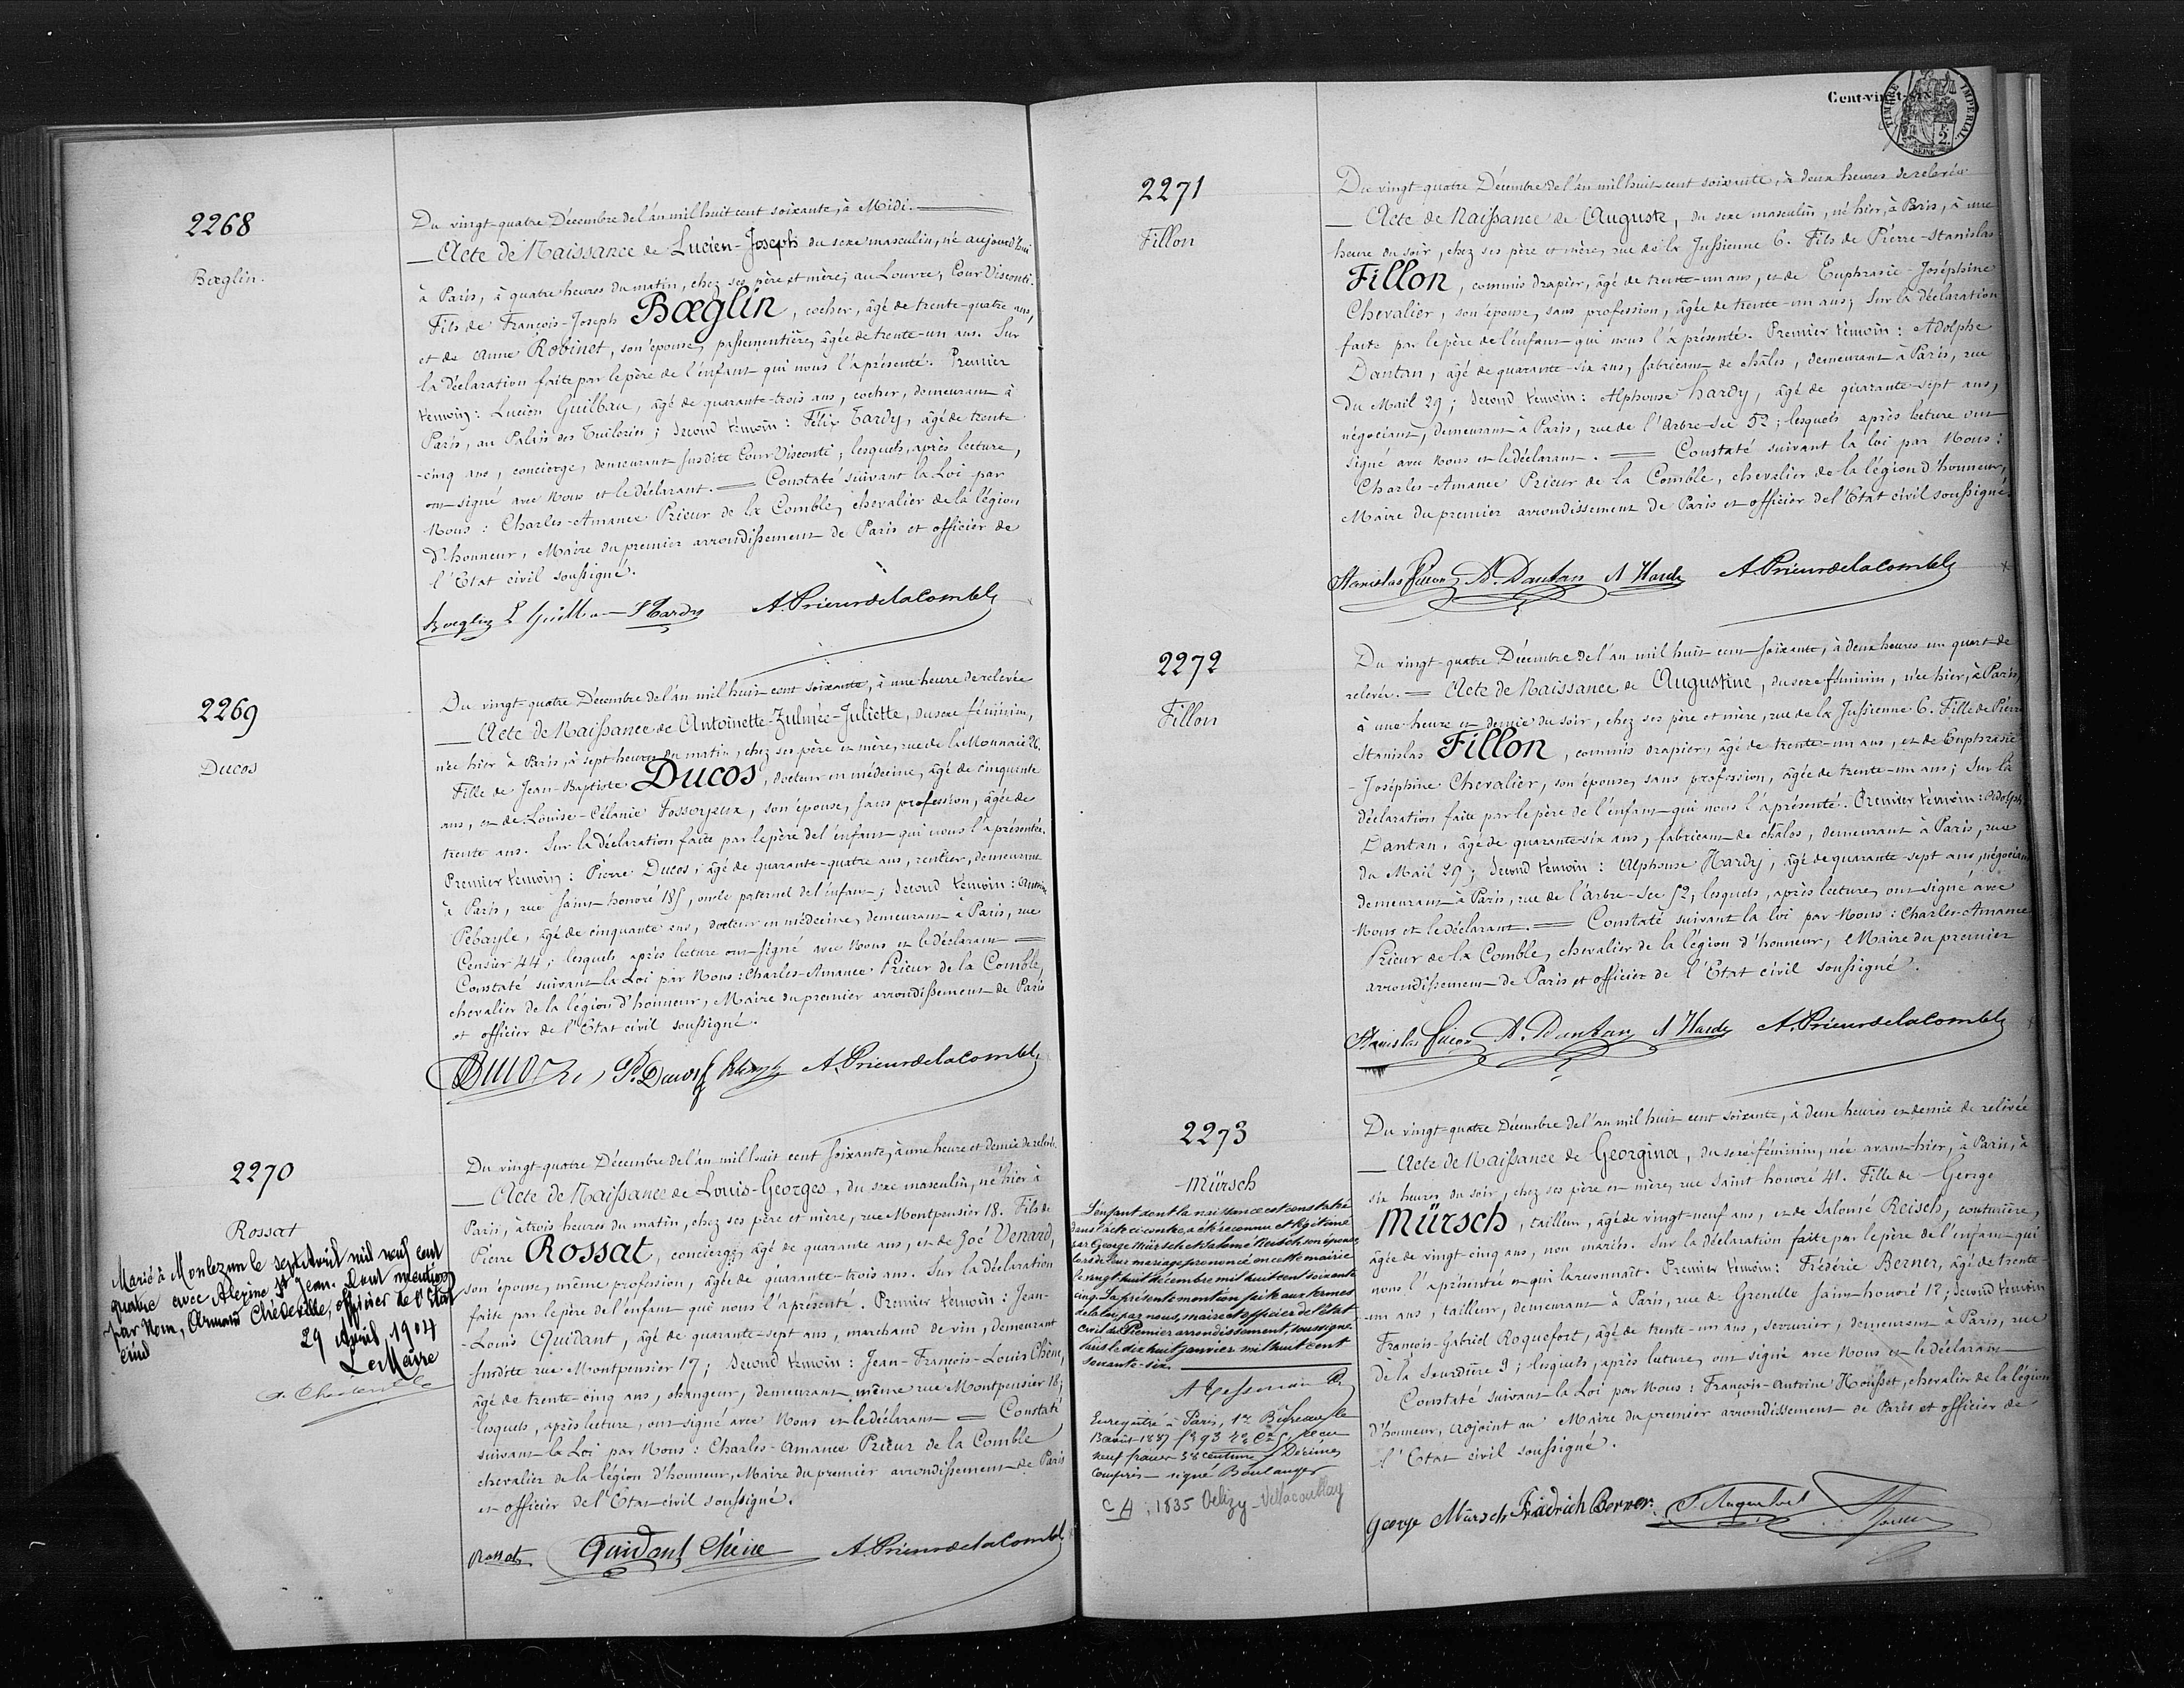 2268
Bœglin.
Du vingt-quatre Décembre de l'an mil huit cent soixante, à Midi.
Acte de Naissance de Lucien-Joseph du sexe masculin, né aujourd'hui
à Paris, à quatre heures du matin, chez ses père et mère, au Louvre, Cour Visconti.
Fils de François-Joseph Bœglin, cocher, âgé de trente-quatre ans,
et de Anne Robinet, son épouse, passementière, âgée de trente-un ans. Sur
la déclaration faite par le père de l'enfant qui nous l'a présenté. Premier
témoin : Lucien Guilbau, âgé de quarante-trois ans, cocher, demeurant à
Paris, au Palais des Tuileries ; Second témoin : Félix Tardy, âgé de trente
-cinq ans, concierge, demeurant susdite Cour Visconti ; lesquels, après lecture,
ont signé avec Nous et le déclarant. = Constaté suivant la Loi par
Nous : Charles-Amance Prieur de la Comble, chevalier de la légion
d'honneur, Maire du premier arrondissement de Paris et officier de
l'Etat civil soussigné.
Bœglin L Guilbau F Tardy A. Prieur de la Comble
2269
Ducos
Du vingt-quatre Décembre de l'an mil huit cent soixante, à une heure de relevée
Acte de Naissance de Antoinette-Zulmée-Juliette, du sexe féminin,
née hier à Paris, à sept heures du matin, chez ses père et mère, rue de la Monnaie 26.
Fille de Jean-Baptiste Ducos, docteur en médecine, âgé de cinquante
ans, et de Louise-Célanie Fossoyeux, son épouse, sans profession, âgée de
trente ans. Sur la déclaration faite par le père de l'enfant qui nous l'a présentée.
Premier témoin : Pierre Ducos, âgé de quarante-quatre ans, rentier, demeurant
à Paris, rue Saint-honoré 185, oncle paternel de l'enfant ; Second témoin : Antoine
Pebayle, âgé de cinquante ans, docteur en médecine, demeurant à Paris, rue
Censier 44 ; lesquels après lecture ont signé avec Nous et le déclarant =
Constaté suivant la Loi par Nous : Charles-Amance Prieur de la Comble,
chevalier de la légion d'honneur, Maire du premier arrondissement de Paris
et officier de l'Etat civil soussigné.
Ducos P. Ducos A. Prieur de la Comble
2270
Rossat
Marié à Monlezun le sept Avril mil neuf cent
quatre avec Alexine St Jean. Dont mention
par Nous, Armand Chédeville, officier de l'Etat
civil
29 Avril 1904
Le Maire
A. Chedeville
Du vingt-quatre Décembre de l'an mil huit cent soixante, à une heure et demie de relevée.
Acte de Naissance de Louis-Georges, du sexe masculin, né hier à
Paris, à trois heures du matin, chez ses père et mère, rue Montpensier 18. Fils de
Pierre Rossat, concierge, âgé de quarante ans, et de Zoé Venard,
son épouse, même profession, âgée de quarante-trois ans. Sur la déclaration
faite par le père de l'enfant qui nous l'a présenté. Premier témoin : Jean-
-Louis Quidant, âgé de quarante-sept ans, marchand de vin, demeurant
susdite rue Montpensier 17 ; Second témoin : Jean-François-Louis Chène,
âgé de trente-cinq ans, changeur, demeurant même rue Montpensier 18 ;
lesquels, après lecture, ont signé avec Nous et le déclarant = Constaté
suivant la Loi par Nous : Charles-Amance Prieur de la Comble
chevalier de la légion d'honneur, Maire du premier arrondissement de Paris
et officier de l'Etat civil soussigné.
Rossat Quidant Chène A. Prieur de la Comble
Cent-vingt-six
TIMBRE IMPERIAL
2
SEINE
2271
Fillon
Du vingt-quatre Décembre de l'an mil huit cent soixante, à deux heures de relevée
Acte de Naissance de Auguste, du sexe masculin, né hier, à Paris, à une
heure du soir, chez ses père et mère, rue de la Jussienne 6. Fils de Pierre-Stanislas
Fillon, commis drapier, âgé de trente-un ans, et de Euphrasie-Joséphine
Chevalier, son épouse, sans profession, âgée de trente-un ans ; Sur la déclaration
faite par le père de l'enfant qui nous l'a présenté. Premier témoin : Adolphe
Dantan, âgé de quarante-six ans, fabricant de châles, demeurant à Paris, rue
du Mail 29 ; Second témoin : Alphonse hardy, âgé de quarante-sept ans,
négociant, demeurant à Paris, rue de l'Arbre-Sec 52 ; lesquels après lecture ont
signé avec Nous et le déclarant. = Constaté suivant la loi par Nous :
Charles-Amance Prieur de la Comble, chevalier de la légion d'honneur,
Maire du premier arrondissement de Paris et officier de l'Etat civil soussigné.
Stanislas Fillon A. Dantan A Hardy A. Prieur de la Comble
2272
Fillon
Du vingt-quatre Décembre de l'an mil huit cent soixante, à deux heures un quart de
relevée. = Acte de Naissance de Augustine, du sexe féminin, née hier, à Paris,
à une heure et demie du soir, chez ses père et mère, rue de la Jussienne 6. Fille de Pierre
Stanislas Fillon, commis drapier, âgé de trente-un ans, et de Euphrasie
-Joséphine Chevalier, son épouse, sans profession, âgée de trente-un ans ; Sur la
déclaration faite par le père de l'enfant qui nous l'a présenté. Premier témoin : Adolphe
Dantan, âgé de quarante-six ans, fabricant de châles, demeurant à Paris, rue
du Mail 29 ; Second témoin : Alphonse Hardy, âgé de quarante-sept ans, négociant
demeurant à Paris, rue de l'arbre-Sec 52, lesquels, après lecture, ont signé avec
Nous et le déclarant. = Constaté suivant la loi par Nous : Charles-Amance
Prieur de la Comble, chevalier de la légion d'honneur, Maire du premier
arrondissement de Paris et officier de l'Etat civil soussigné.
Stanislas Fillon A. Dantan A Hardy A. Prieur de la Comble
2273
Mürsch
L'enfant dont la naissance est constatée
dans l'acte ci-contre, a été reconnu et légitimé
par George Mürsch et Salomé Reisch, son épouse,
lors de leur mariage prononcé en cette mairie
le vingt-huit décembre mil huit cent soixante
cinq. La présente mention faite aux termes
de la loi par nous, maire et officier de l'état
civil du Premier arrondissement, soussigné.
Paris le dix huit Janvier mil huit cent
soixante-six.
Enregistré à Paris, 1er Bureau, le
août 1887 f° 93 reçu
neuf francs 38 centimes Décimes
compris signé Boulanger
1835 Vélizy-Villacoublay
Du vingt-quatre Décembre de l'an mil huit cent soixante, à deux heures et demie de relevée
Acte de Naissance de Georgina, du sexe féminin, née avant-hier, à Paris, à
six heures du soir, chez ses père et mère, rue Saint honoré 41. Fille de George
Mürsch, tailleur, âgé de vingt-neuf ans, et de Salomé Reisch, couturière,
âgée de vingt-cinq ans, non mariés. Sur la déclaration faite par le père de l'enfant qui
nous l'a présentée et qui la reconnaît. Premier témoin : Frédéric Berner, âgé de trente-
-un ans, tailleur, demeurant à Paris, rue de Grenelle Saint-honoré 12 ; Second témoin
François-Gabriel Roquefort, âgé de trente-un ans, serrurier, demeurant à Paris, rue
de la Sourdière 9 ; lesquels, après lecture, ont signé avec Nous et le déclarant
Constaté suivant la Loi par Nous : François-Antoine Housset, chevalier de la légion
d'honneur, adjoint au Maire du premier arrondissement de Paris et officier de
l'Etat civil soussigné.
George Mürsch Friedrich Berner